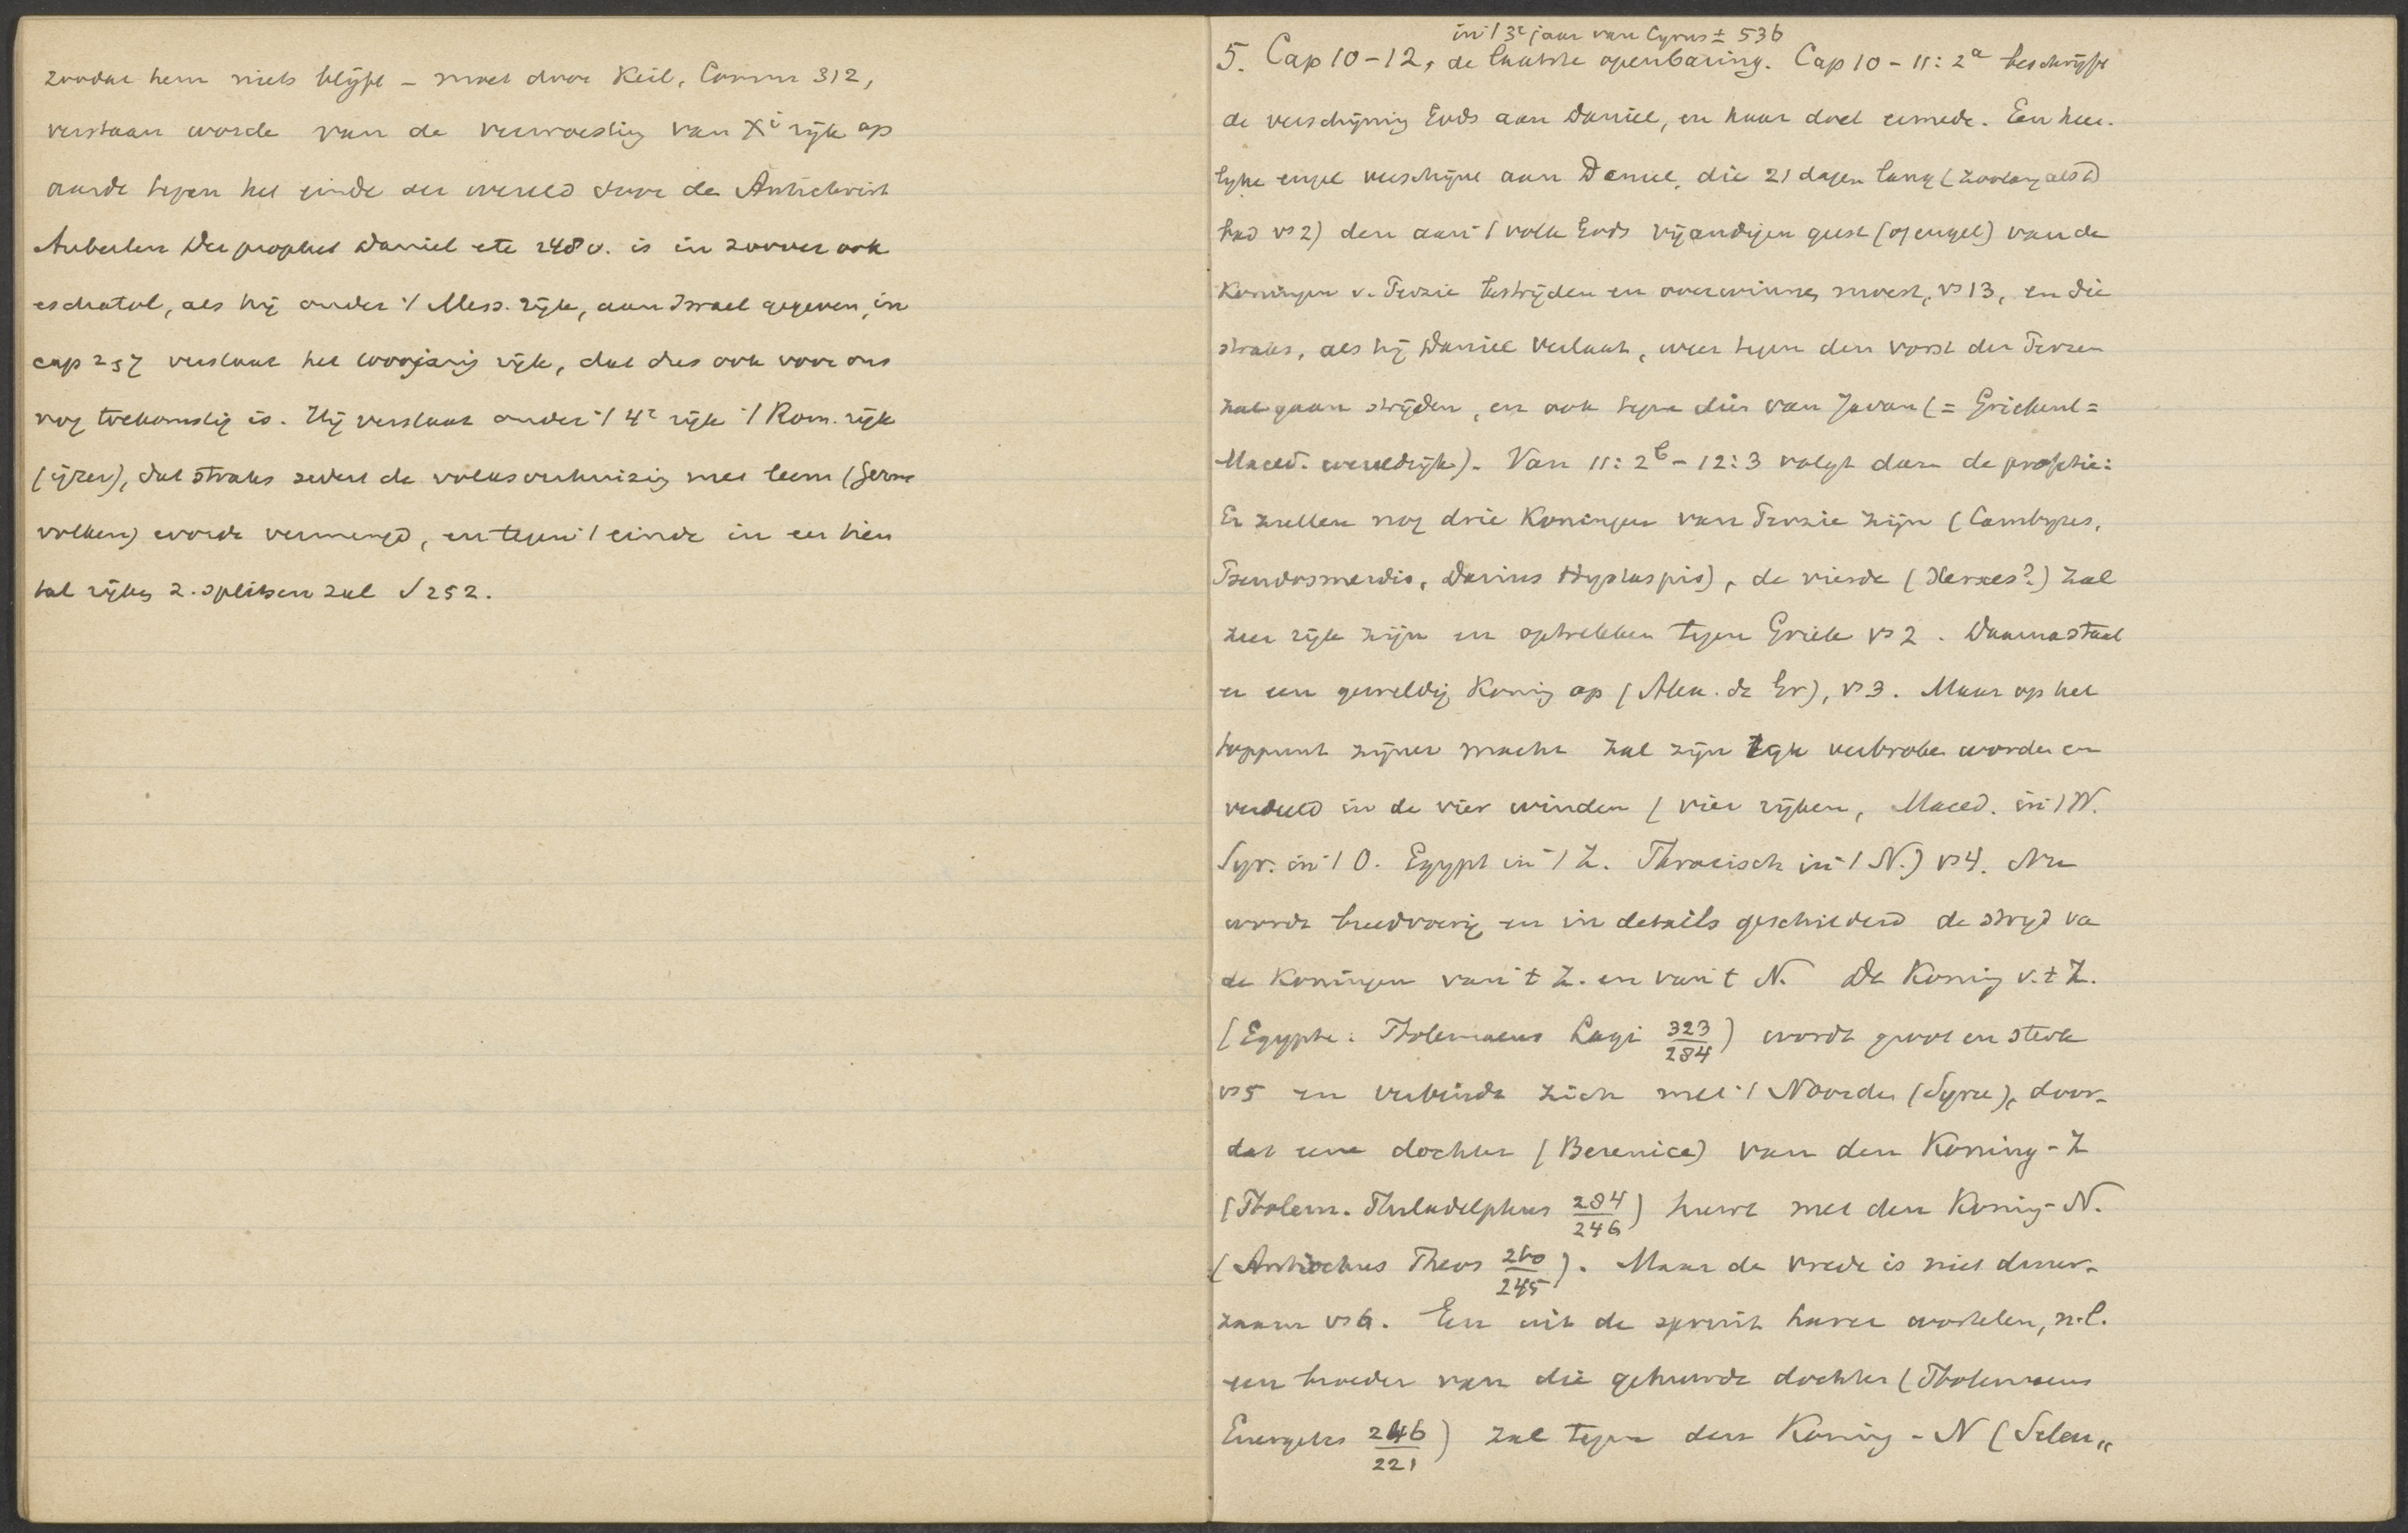 zoodat hem niets blijft - moet door Keil, Comm 312,
verstaan worde van de verwoesting van Xi rijk op
aarde tegen het einde der wereld door de Antichrist
Auberlen Der prophet Daniel etc 248 v. is in zoover ook
eschatol, als hij onder 't Mess. rijk, aan Israel gegeven, in
cap 2 & 7 verstaat het 1000jarig rijk, dat dus ook voor ons
nog toekomstig is. Hij verstaat onder 't 4e rijk 't Rom. rijk
(ijzer), dat straks sedert de volksverhuizing met leem (Germ
volken) worde vermengd, en tegen 't einde in een tien
tal rijken z. splitsen zal √ 252.
in 't 3e jaar van Cyrus ± 536
5. Cap 10-12, de laatste openbaring. Cap 10 - 11: 2a beschrijft
de verschijning Gods aan Daniel, en haar doel ermede. Een heer-
lijke engel verschijnt aan Daniel, die 21 dagen lang (zoolang als D
had vs 2) den aan 't volk Gods vijandigen geest (of engel) van de
Koningen v. Perzie bestrijden en overwinnen moest, vs 13, en die
straks, als hij Daniel verlaat, weer tegen den vorst der Perzen
zal gaan strijden, en ook tegen dien van Javan (= Griekenl =
Maced. wereldrijk). Van 11: 2b - 12: 3 volgt dan de profetie:
Er zullen nog drie Koningen van Perzie zijn (Cambyses,
Pseudosmerdis, Darius Hystaspis), de vierde (Xerxes?) zal
zeer rijk zijn en optrekken tegen Griek vs 2. Daarna staat
er een geweldig Koning op (Alex. de Gr), vs 3. Maar op het
toppunt zijner macht zal zijn rijk verbroken worden en
verdeeld in de vier winden (vier rijken, Maced. in 't W.
Syr. in 't O. Egypt in 't Z. Thracisch in 't N.) vs 4. Nu
wordt breedvoerig en in details geschilderd de strijd va
de Koningen van 't Z. en van 't N. De Koning v. t Z.
(Egypte: Ptolemaeus Lagi 323/284) wordt groot en sterk
vs 5 en verbindt zich met 't Noorden (Syrie), door-
dat eene dochter (Berenice) van den Koning-Z
(Ptolem. Philadelphus 284/246) huwt met den Koning-N.
(Antiochus Theos 260/245). Maar de vrede is niet duur-
zaam vs 6. Een uit de spruit harer wortelen, n.l.
een broeder van die gehuwde dochter (Ptolemaeus
Euergetes 246/221) zal tegen den Koning-N (Seleu„